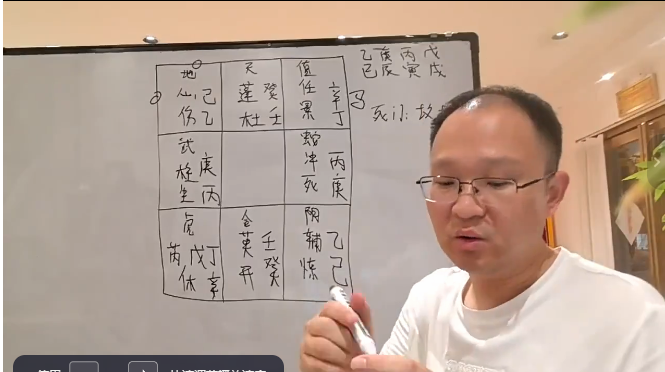 乙庚丙戊
巳辰寅戌
地
心己
伤乙
天
蓬癸
杜壬
值
任辛
景丁
马
死门: 故
武
柱庚
生丙
蛇
冲丙
死庚
虎
芮戊丁
休辛
合
英壬
开癸
阴
辅乙
惊己